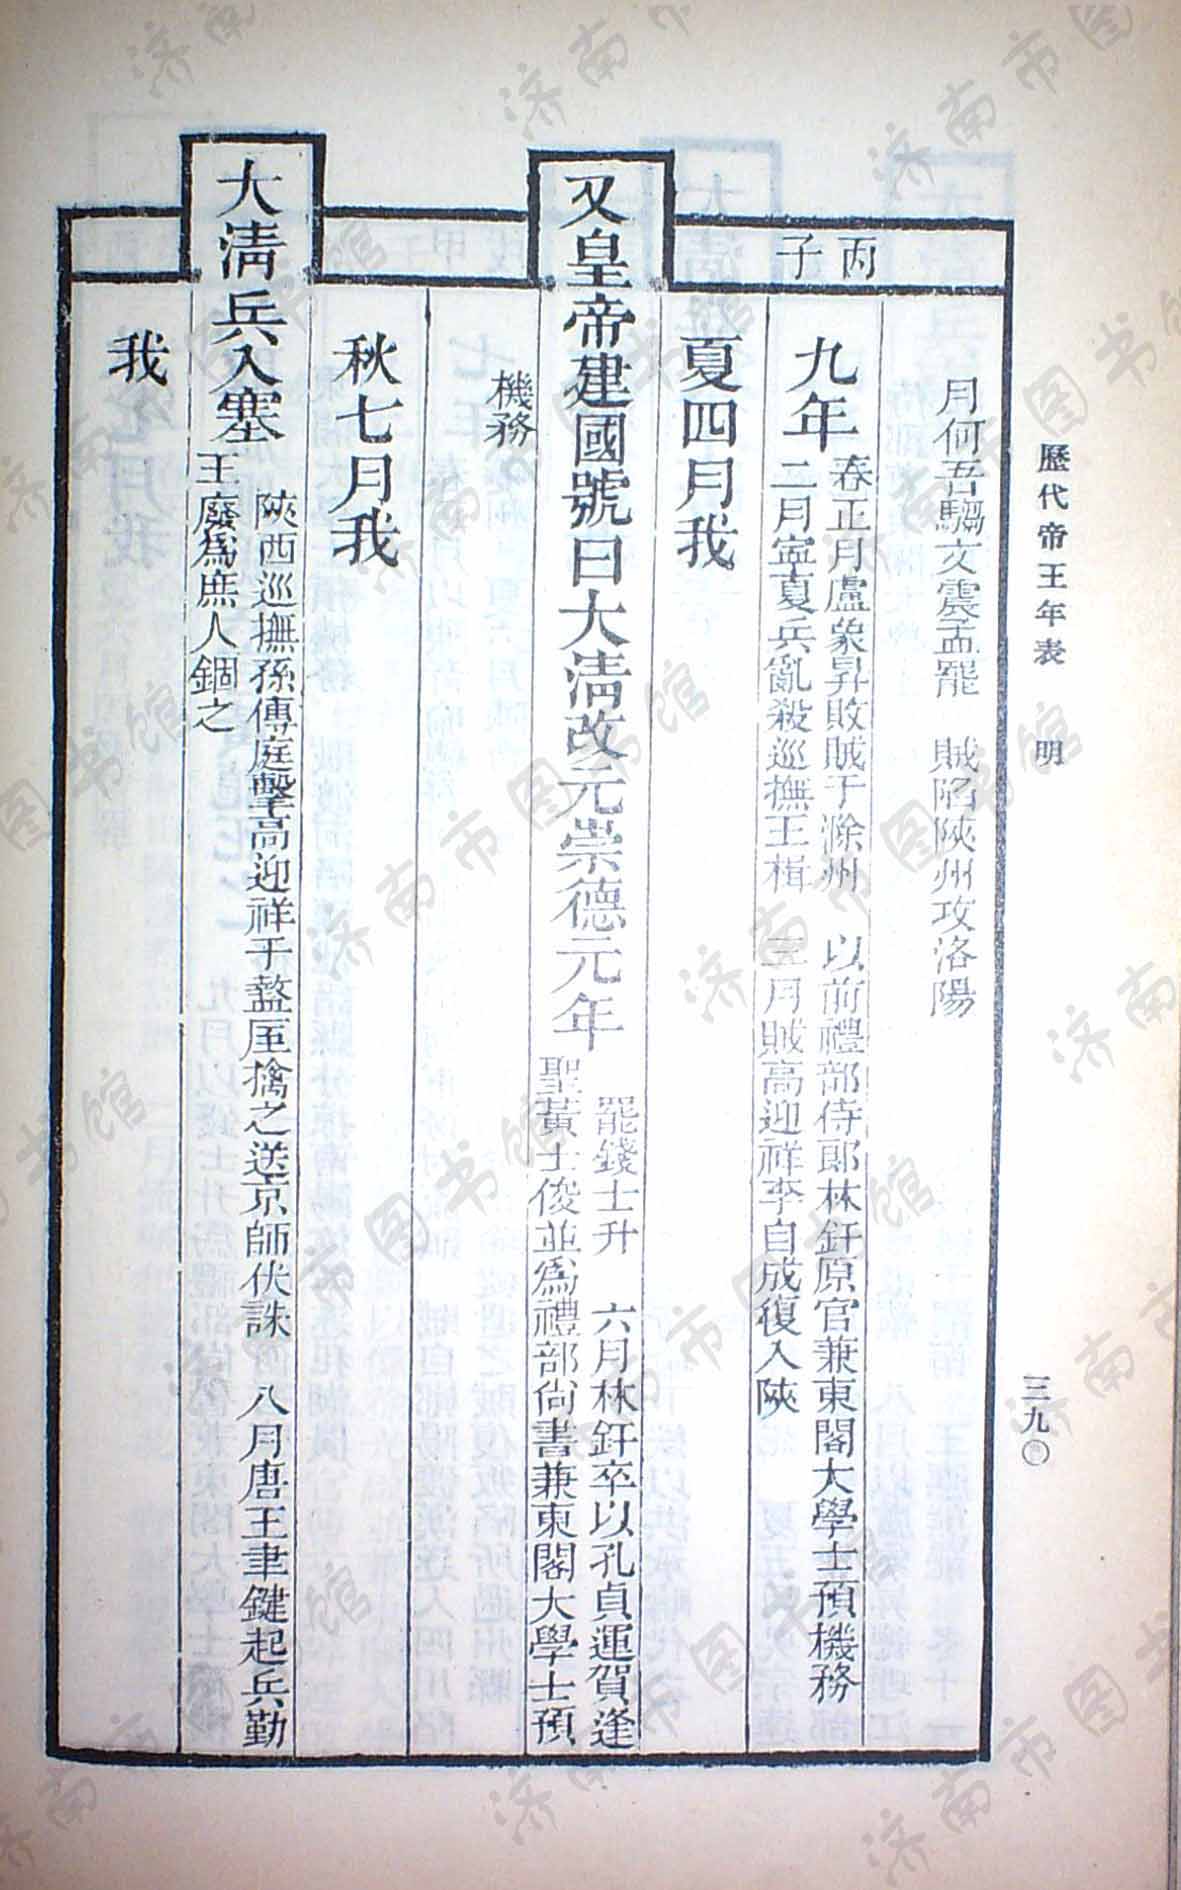 歷代帝王年表　明
三九〇
月何吾騶文震孟罷　賊陷陝州攻洛陽
丙子
九年
春正月盧象昇敗賊于滁州　以前禮部侍郎林釬原官兼東閣大學士預機務
二月寧夏兵亂殺巡撫王楫　三月賊高迎祥李自成復入陝
夏四月我
文皇帝建國號曰大淸改元崇德元年
罷錢士升　六月林釬卒以孔貞運賀逢
聖黃士俊並爲禮部尙書兼東閣大學士預
機務
秋七月我
大淸兵入塞
陝西巡撫孫傳庭擊高迎祥于盩厔擒之送京師伏誅　八月唐王聿鍵起兵勤
王廢爲庶人錮之
我
济南市图书馆